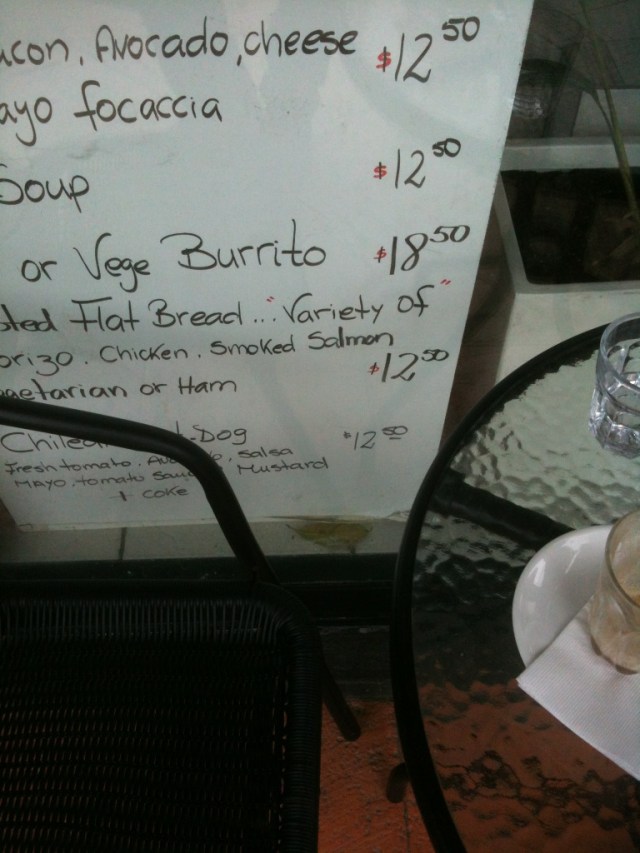 acon, Avocado, cheese $12 50
ayo focaccia
Soup $12 50
or Vege Burrito $18 50
sted Flat Bread... "Variety of"
orizo. Chicken. Smoked Salmon
getarian or Ham $12 50
Chilean -Dog $12 50
Fresh tomato. Avo o, salsa
Mayo. tomato Sauce Mustard
+ coke